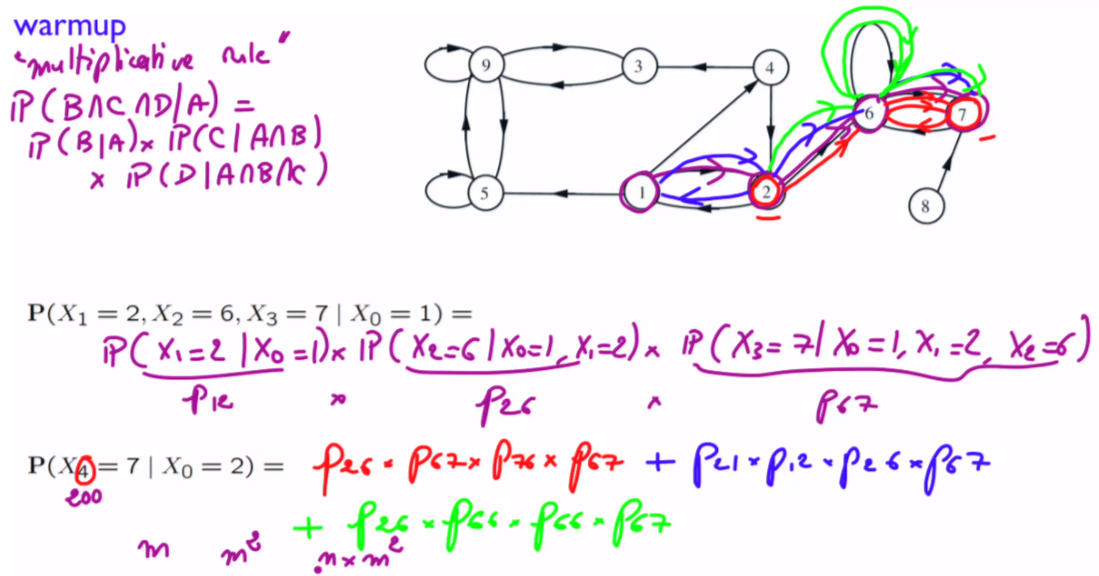 warmup
"multiplicative rule"
P(B∩C∩D|A) =
P(B|A) × P(C|A∩B)
× P(D|A∩B∩C)
9 3 4 6 7
5 1 2 8
P(X₁ = 2, X₂ = 6, X₃ = 7 | X₀ = 1) =
P(X₁=2|X₀=1) × P(X₂=6|X₀=1, X₁=2) × P(X₃=7|X₀=1, X₁=2, X₂=6)
p₁₂ × p₂₆ × p₆₇
P(X₄ = 7 | X₀ = 2) = p₂₆ × p₆₇ × p₇₆ × p₆₇ + p₂₁ × p₁₂ × p₂₆ × p₆₇
200
+ p₂₆ × p₆₆ × p₆₆ × p₆₇
m m² n × m²